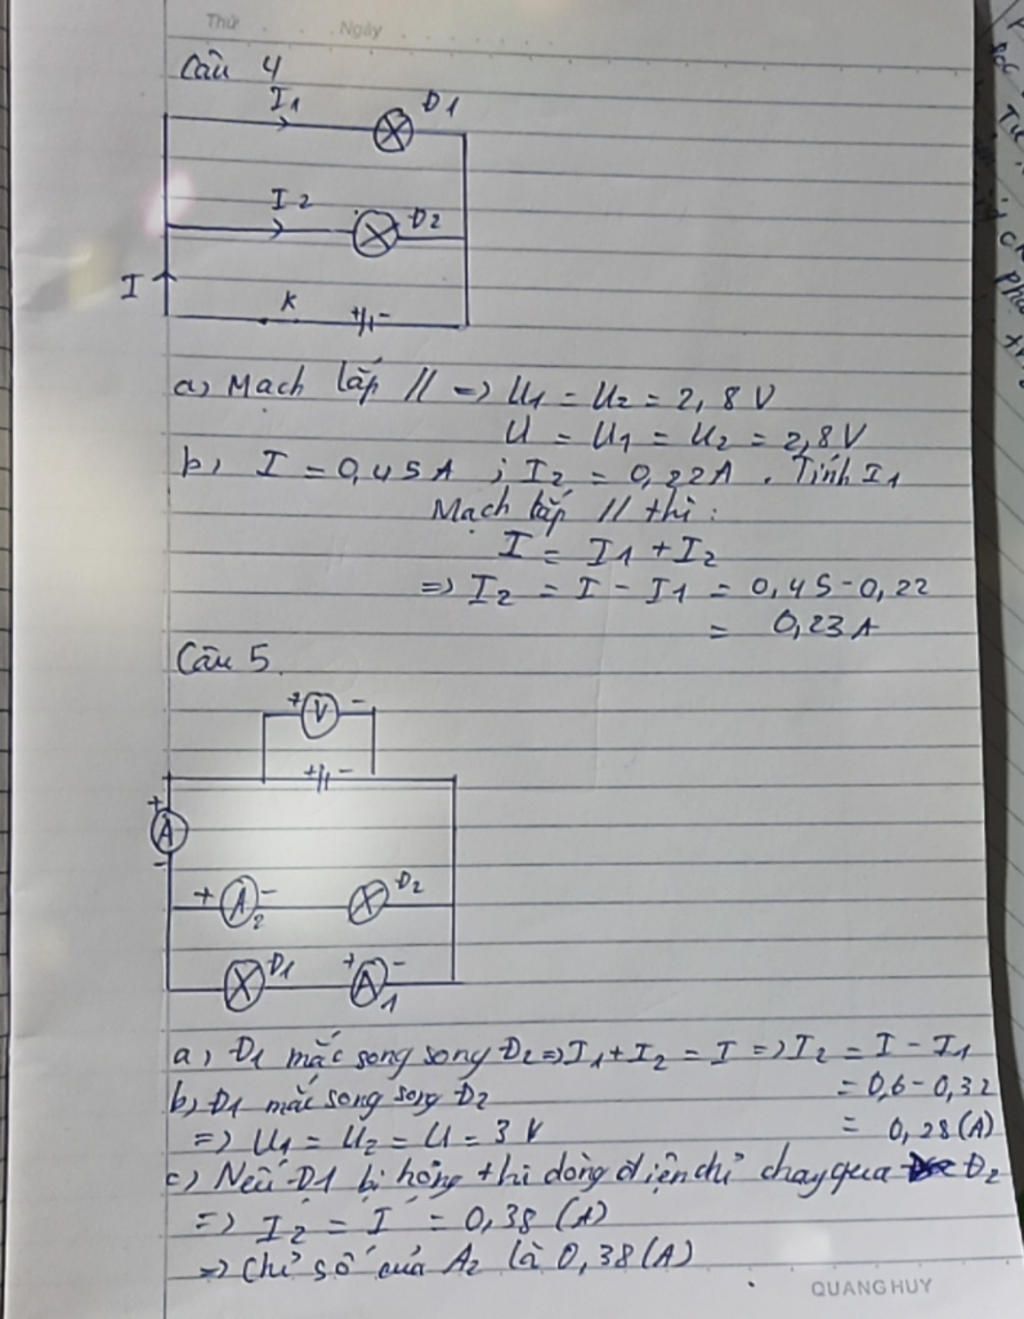 Thứ Ngày
Câu 4
I1 Đ1
I2 Đ2
I
K
+ -
a) Mạch lắp // => U1 = U2 = 2,8 V
U = U1 = U2 = 2,8V
b) I = 0,45A ; I2 = 0,22A . Tính I1
Mạch lắp // thì :
I = I1 + I2
=> I2 = I - I1 = 0,45 - 0,22
= 0,23A
Câu 5
+ V -
+ -
+
A
-
+ A2 - Đ2
Đ1 + A1 -
a) Đ1 mắc song song Đ2 => I1 + I2 = I => I2 = I - I1
= 0,6 - 0,32
b) Đ1 mắc song song Đ2
= 0,28 (A)
=> U1 = U2 = U = 3 V
c) Nếu Đ1 bị hỏng thì dòng điện chỉ chạy qua Đ2
=> I2' = I' = 0,38 (A)
=> Chỉ số của A2 là 0,38 (A)
QUANG HUY